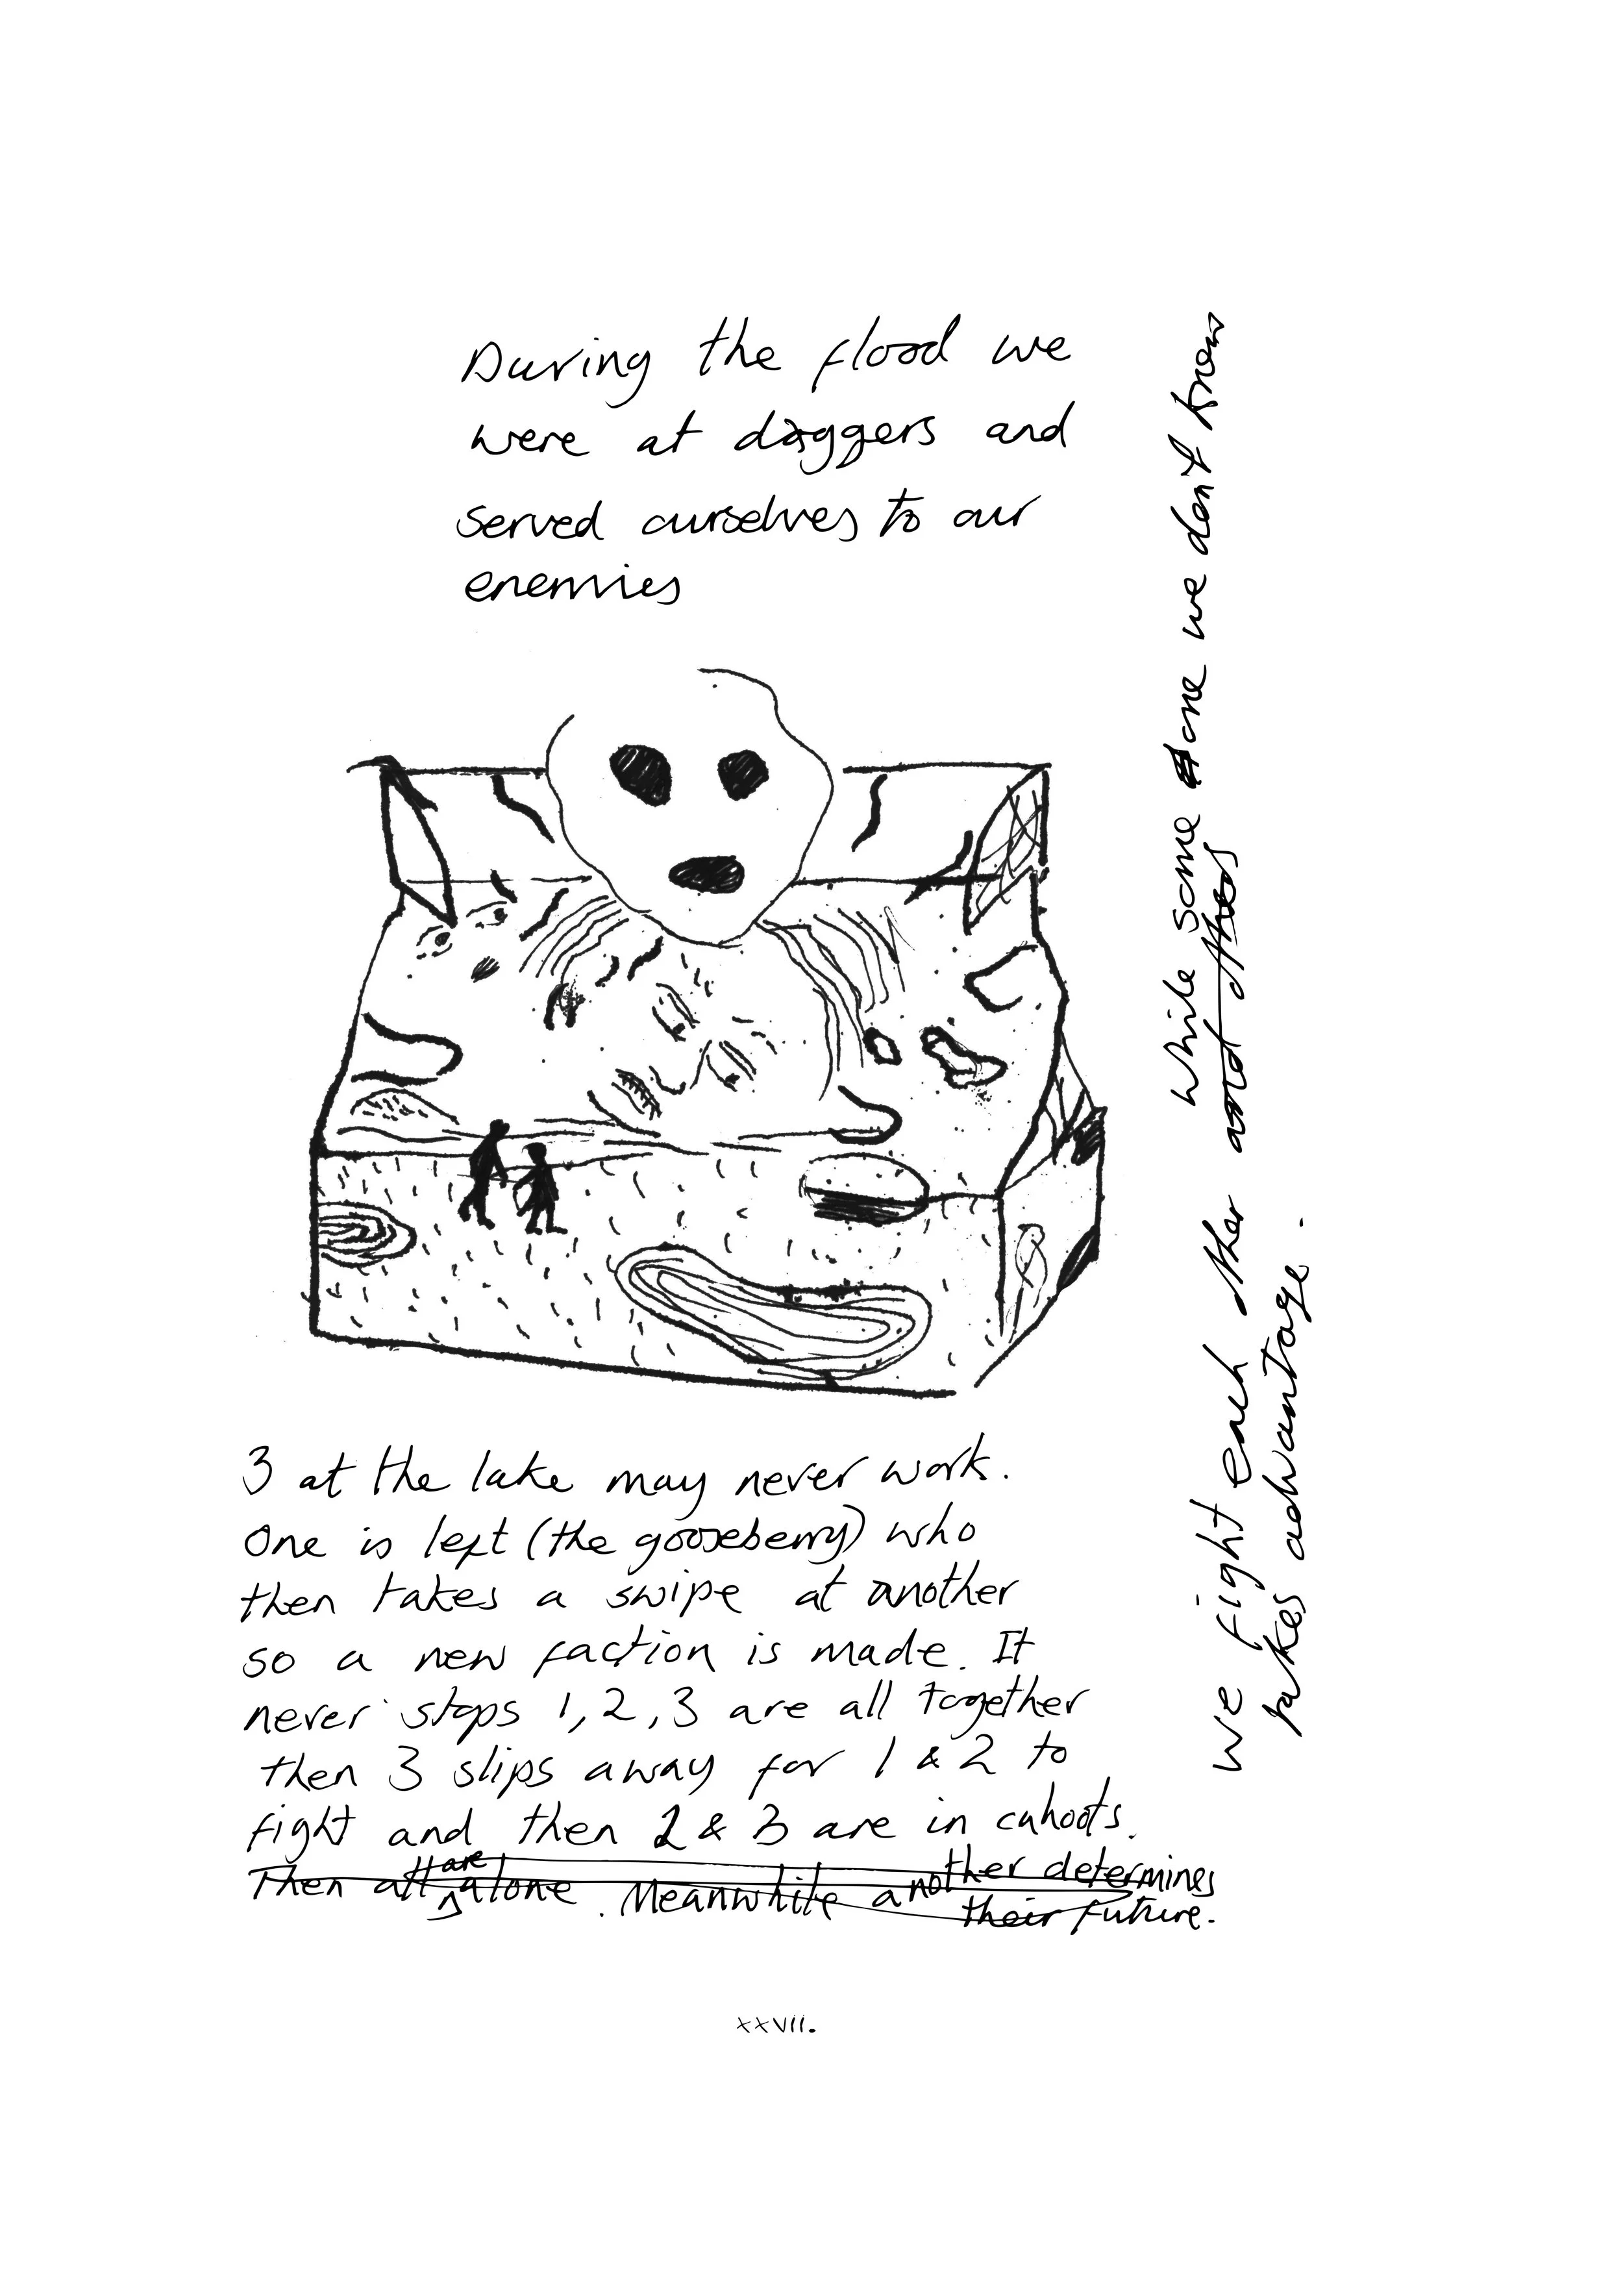 During the flood we
were at daggers and
served ourselves to our
enemies
3 at the lake may never work.
One is left (the gooseberry) who
then takes a swipe at another
so a new faction is made. It
never stops 1, 2, 3 are all together
then 3 slips away for 1 & 2 to
fight and then 2 & 3 are in cahoots.
Then all are alone. Meanwhile another determines
their future.
We fight each other and others while some one we don't know
takes advantage.
xxvii.